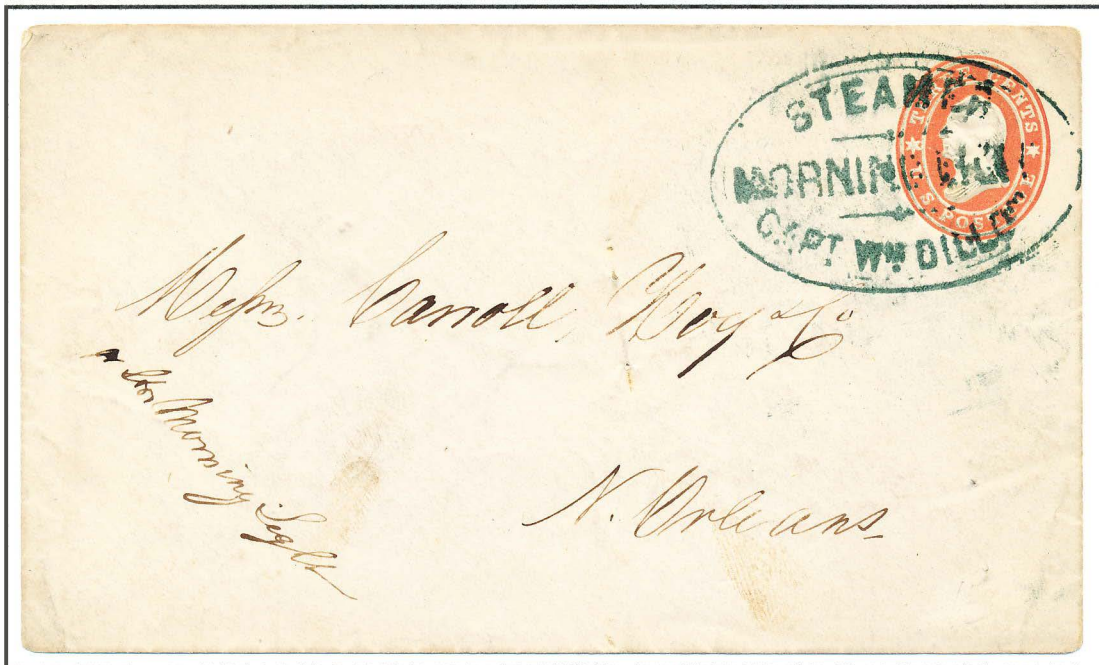 STEAMER
MORNING
CAPT. Wm DILLON
THREE CENTS
U.S. POSTAGE
Messrs. Carroll, Hoy & Co
Str Morning Light
N. Orleans